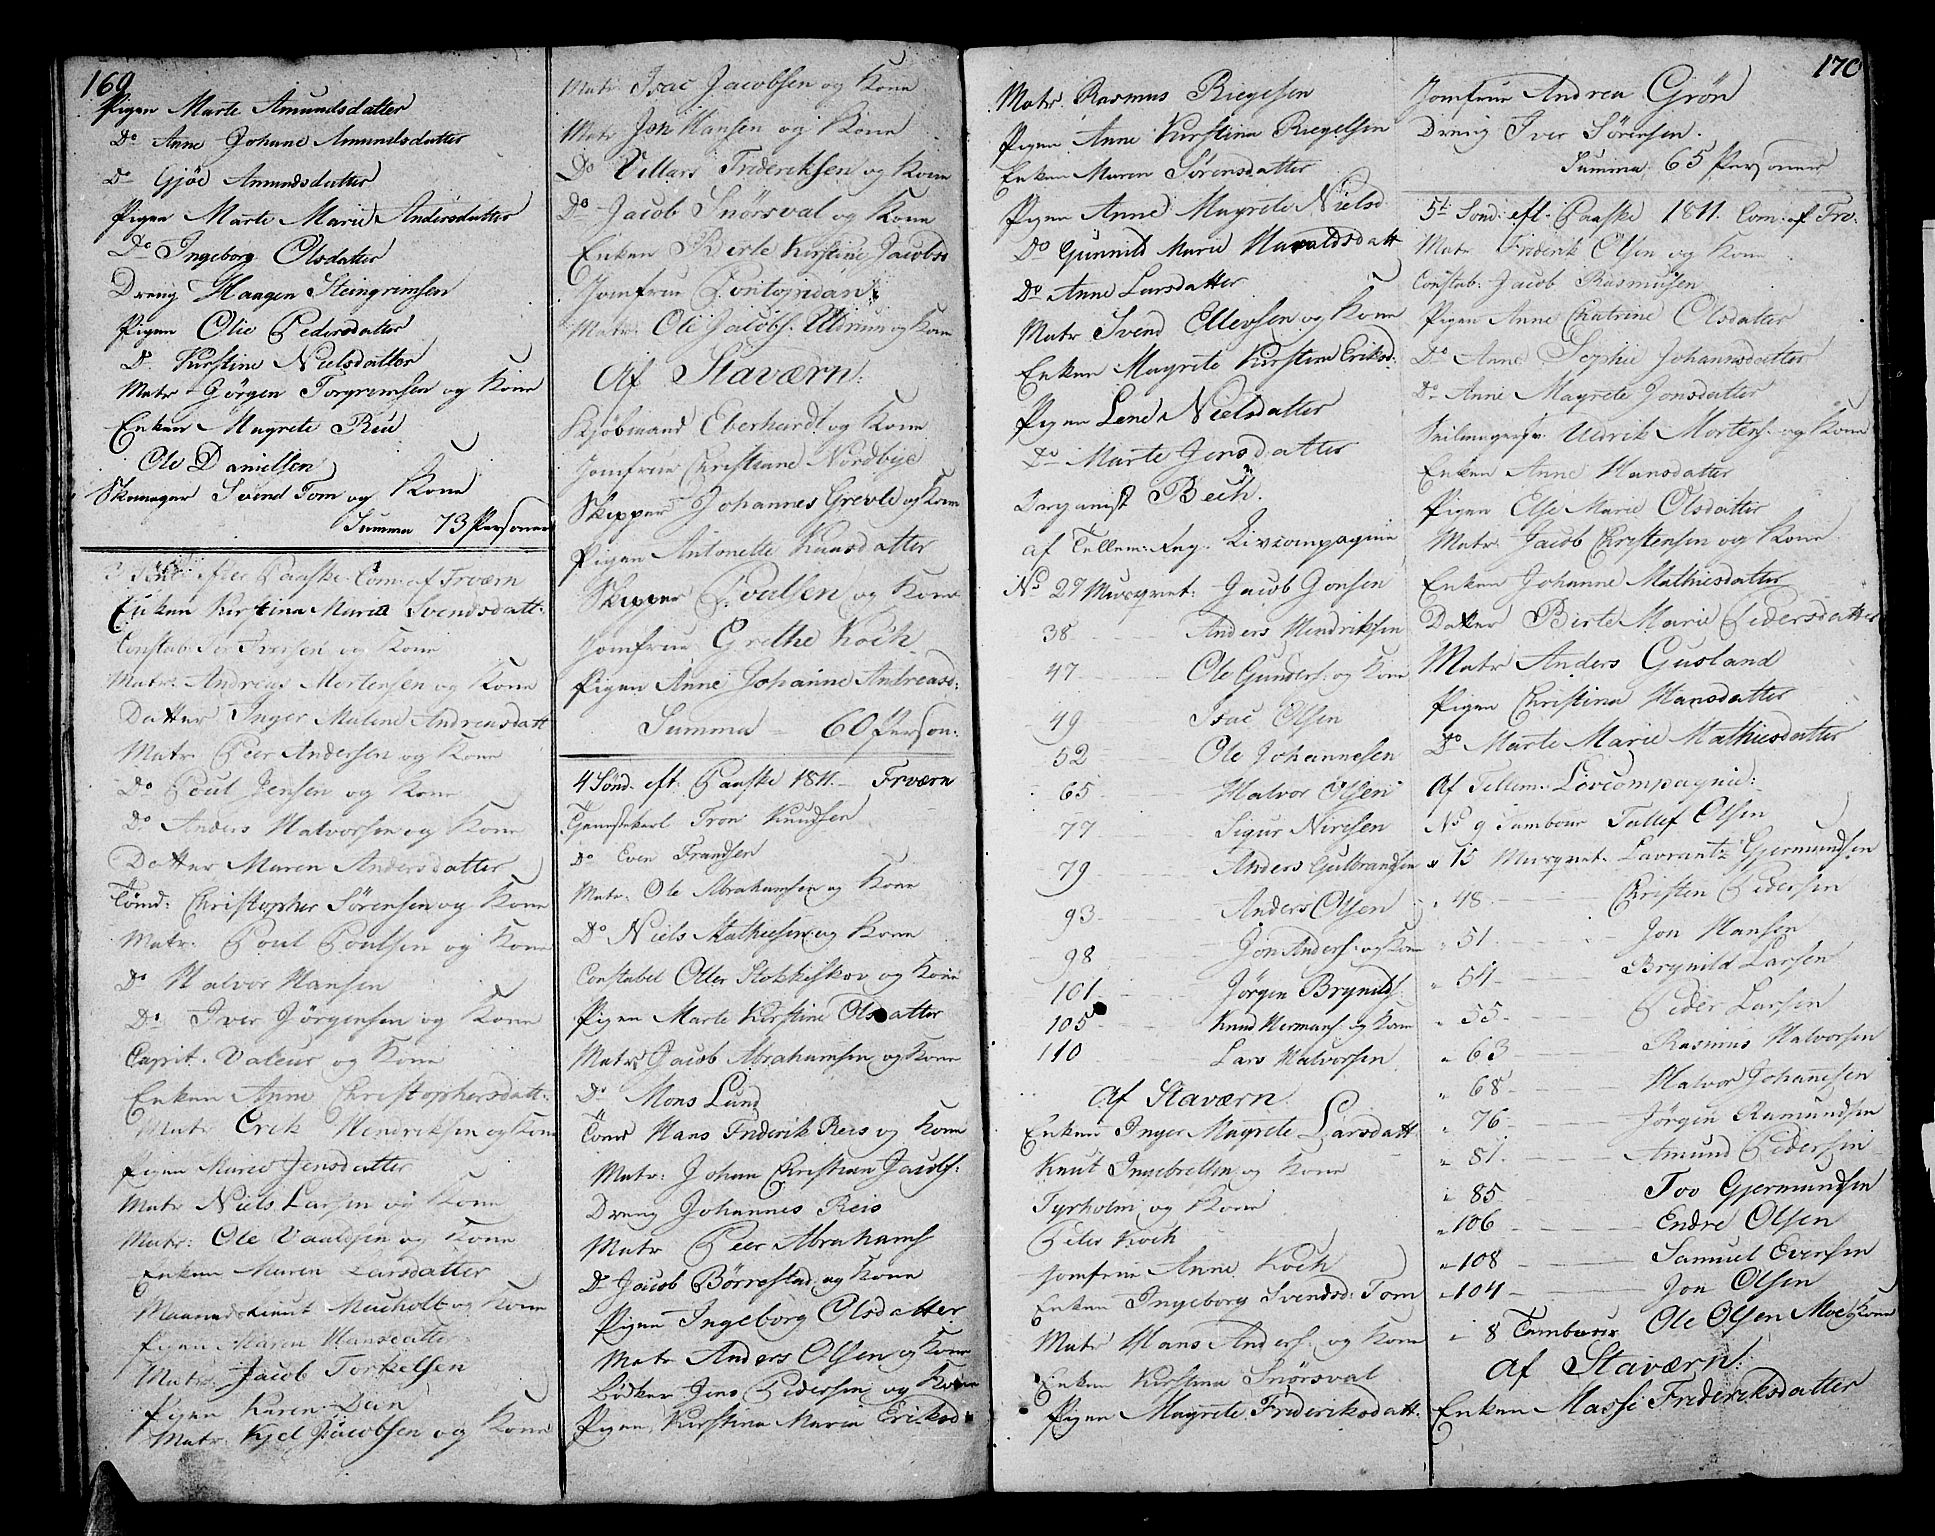 169
Pigen Marte Amundsdatter
Do Anne Johane Amundsdatter
Do Gjöe Amundsdatter
Pigen Marte Marie Andersdatter
Do Ingeborg Olsdatter
Dreng Haagen Steingrimsen
Pigen Olie Pedersdatter
Do Kirstine Nielsdatter
Matr Jørgen Torgrimsen og Kone
Enken Magrete Reu
Ole Danielsen
Skomager Svend Tom og Kone
Summa 73 Personer
3 Sönd efter Paaske. Com: af Frværn
Enken Kirstina Maria Svendsdatt:
Constab: Iversen og Kone
Matr: Andreas Mortensen og Kone
Datter Inger Malene Andreasdatt
Matr Peer Andersen og Kone
Do Poul Jensen og Kone
Do Anders Halvorsen og Kone
Datter Maren Andersdatter
Tömd: Christopher Sörensen og Kone
Matr: Poul Poulsen og Kone
Do Halvor Hansen
Do Iver Jörgensen og Kone
Capit. Valeur og Kone
Enken Anne Christophersdatt:
Matr Erik Hendriksen og Kone
Pigen Maren Jensdatter
Matr Niels Larsen og Kone
Matr: Ole Vauldsen og Kone
Enken Maren Larsdatter
Maaneds Lieut Mucholt og Kone
Pigen Maren Hansdatter
Matr: Jacob Torkelsen
Pigen Karen Dein
Matr: Kjel Jacobsen og Kone
Matr Isac Jacobsen og Kone
Matr Joh Hansen og Kone
Do Villars Frideriksen og Kone
Do Jacob Snörsval og Kone
Enken Berte Kirstine Jacobsd
Jomfrue Pontopidan
Matr: Ole Jacobs: Ulirum og Kone
Af Staværn:
Kjöbmand Eberhardt og Kone
Jomfrue Christiane Nordbye
Skipper Johannes Grevle og Kone
Pigen Antonette Knusdatter
Skipper Poulsen og Kone
Jomfrue Grethe Koch
Pigen Anne Johanne Andreasd:
Summa - 60 Person:
4 Sönd. eft: Paaske 1811. Frværn
Tjenestekarl Tron Knudsen
Do Even Frandsen
Matr. Ole Abrahamsen og Kone
Do Niels Mathiesen og Kone
Constabel Oller Stokkeskov og Kone
Pigen Marte Kirstine Olsdatter
Matr Jacob Abrahamsen og Kone
Do Mons Lund
Tömr Hans Friderik Reis og Kone
Matr: Johan Christian Jacobs:
Dreng Johannes Reis
Matr Peer Abrahams
Do Jacob Börrestad og Kone
Pigen Ingeborg Olsdatter
Matr Anders Olsen og Kone
Bödker Jens Pedersen og Kone
Pigen Kirstina Maria Eriksd
Matr Rasmus Riegelsen
Pigen Anne Kirstina Riegelsen
Enken Maren Sörensdatter
Pigen Anne Magrete Nielsd
Do Gunnild Marie Haraldsdatt
Do Anne Larsdatter
Matr Svend Ellevsen og Kone
Enken Magrete Kirstina Eriksd:
Pigen Lene Nielsdatter
Do Marte Jensdatter
Organist Bech.
af Tellem: Reg. Livcompagnie
No 27 Musqvet: Jacob Jonsen
38 Anders Hendriksen
47 Ole Gunders: og Kone
49 Isac Olsen
52 Ole Johannesen
65 Halvor Olsen
77 Sigur Nirisen
79 Anders Gulbrandsen
93 Anders Olsen
98 Jon Anders: og Kone
101 Jörgen Brynilds
105 Knud Hermans og Kone
110 Lars Halvorsen
Af Staværn.
Enken Inger Magrete Larsdatt
Knut Ingebretsen og Kone
Tyrholm og Kone
Peter Koch
Jomfrue Anne Koch
Enken Ingeborg Svendsd: Tom
Matr Hans Anders: og Kone
Enken Kirstina Snörsval
Pigen Magrete Frideriksdatt.
170
Jomfrue Andrea Grön
Dreng Iver Sörensen.
Summa 65 Personer
5te Sönd. eft. Paaske 1811. Com. af Frv.
Matr Friderik Olsen og Kone
Constab: Jacob Rasmusen
Pigen Anne Chatrine Olsdatter
Do Anne Sophie Johannsdatter
Do Anne Magrete Jonsdatter
Seilmagersv. Uldrik Mortens. og Kone
Enken Anne Hansdatter
Pigen Else Marie Olsdatter
Matr Jacob Christensen og Kone
Enken Johanne Mathiesdatter
Datter Birte Marie Pedersdatter
Matr Anders Gusland
Pigen Christina Hansdatter
Do Marte Marie Mathiesdatter
Af Tellem. Livcompagnie:
No 9 Tambour Tallef Olsen
" 15 Musqvet. Lavrantz Gjermundsen
" 48 Christen Pedersen
" 51 Jon Hansen
" 54 Brynild Larsen
" 55 Peder Larsen
" 63 Rasmus Halvorsen
" 68 Halvor Johannesen
" 76 Jörgen Ramundsen
" 81. Amund Pedersen
" 85 Tov Gjermundsen
" 106 Endre Olsen
" 108 Samuel Evensen
" 104 Jon Olsen
" 8 Tambour Ole Olsen Moe og Kone
Af Staværn:
Enken Masse Frideriksdatter